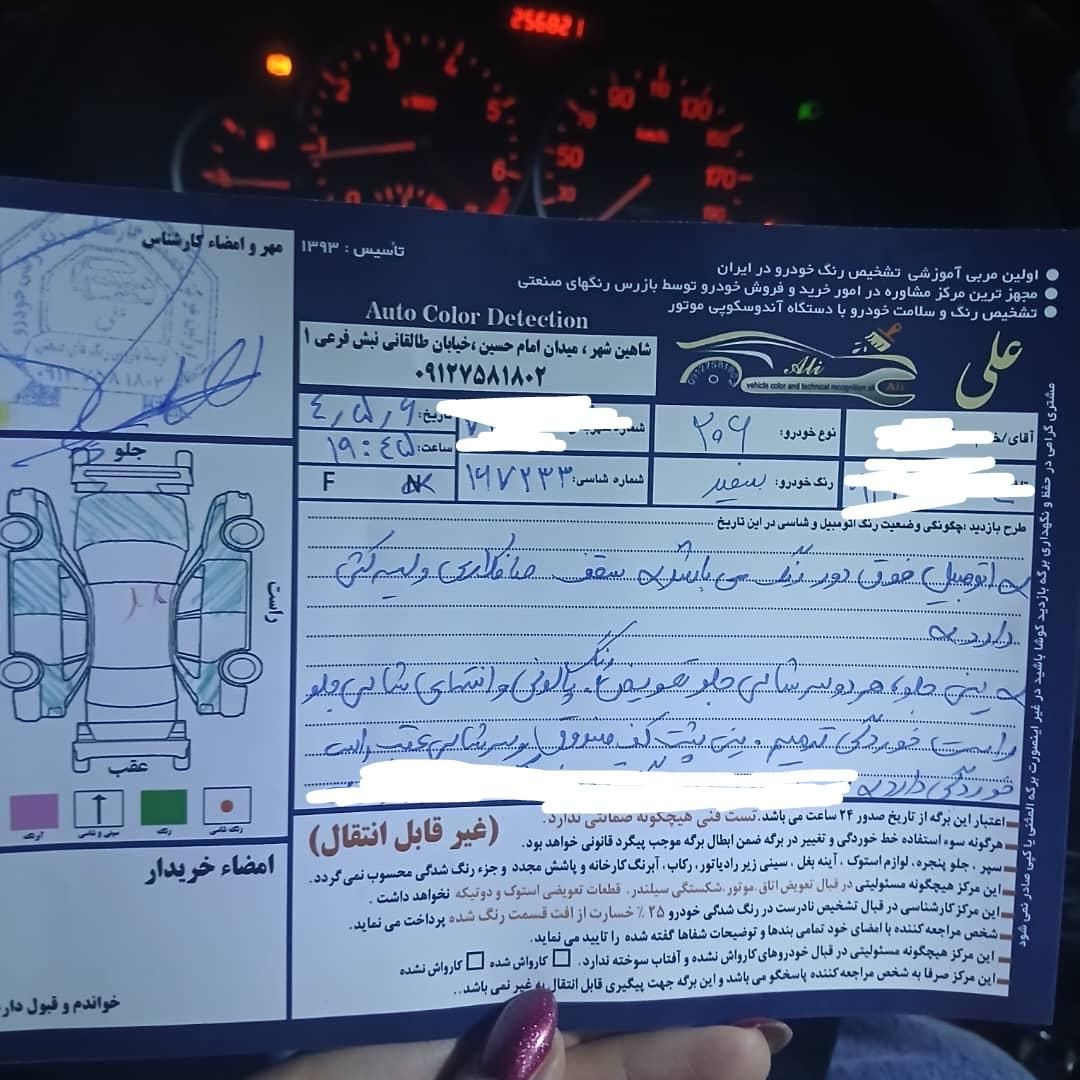 256821
تأسیس : ۱۳۹۳
اولین مربی آموزشی تشخیص رنگ خودرو در ایران
مجهز ترین مرکز مشاوره در امور خرید و فروش خودرو توسط بازرس رنگهای صنعتی
تشخیص رنگ و سلامت خودرو با دستگاه آندوسکوپی موتور
Auto Color Detection
شاهین شهر ، میدان امام حسین ،خیابان طالقانی نبش فرعی ۱
۰۹۱۲۷۵۸۱۸۰۲
علی
Ali
vehicle color and technical recognition
Ali
مهر و امضاء کارشناس
۰۹۱۲۷۵۸۱۸۰۲
آقای/
نوع خودرو: ۲۰۶
تاریخ: ۴,۵,۶
رنگ خودرو: سفید
شماره شاسی: ۱۶۷۲۳۳
ساعت: ۱۹:۴۵
F
طرح بازدید :چگونگی وضعیت رنگ اتومبیل و شاسی در این تاریخ
اتومبیل فوق دور رنگ می باشد سقف صافکاری و لیسه کشی
دارد
سینی جلو، هر دو سرشاسی جلو تعویض رنگ پالونی و انتهای شاسی جلو
راست خوردگی ترمیم . سینی پشت کف صندوق و سرشاسی عقب راست
خوردگی دارد
جلو
راست
عقب
آبرنگ
سینی و شاسی
رنگ
رنگ شاسی
اعتبار این برگه از تاریخ صدور ۲۴ ساعت می باشد. تست فنی هیچگونه ضمانتی ندارد.
هرگونه سوء استفاده خط خوردگی و تغییر در برگه ضمن ابطال برگه موجب پیگرد قانونی خواهد بود.
(غیر قابل انتقال)
سپر ، جلو پنجره، لوازم استوک ، آینه بغل ، سینی زیر رادیاتور، رکاب، آبرنگ کارخانه و پاشش مجدد و جزء رنگ شدگی محسوب نمی گردد.
این مرکز هیچگونه مسئولیتی در قبال تعویض اتاق،موتور،شکستگی سیلندر، قطعات تعویضی استوک و دوتیکه نخواهد داشت .
این مرکز کارشناسی در قبال تشخیص نادرست در رنگ شدگی خودرو ۲۵ ٪ خسارت از افت قسمت رنگ شده پرداخت می نماید.
شخص مراجعه کننده با امضای خود تمامی بندها و توضیحات شفاها گفته شده را تایید می نماید.
این مرکز هیچگونه مسئولیتی در قبال خودروهای کارواش نشده و آفتاب سوخته ندارد. کارواش شده کارواش نشده
این مرکز صرفا به شخص مراجعه کننده پاسخگو می باشد و این برگه جهت پیگیری قابل انتقال به غیر نمی باشد..
امضاء خریدار
خواندم و قبول دارم
مشتری گرامی در حفظ و نگهداری برگه بازدید کوشا باشید در غیر اینصورت برگه المثنی یا کپی صادر نمی شود